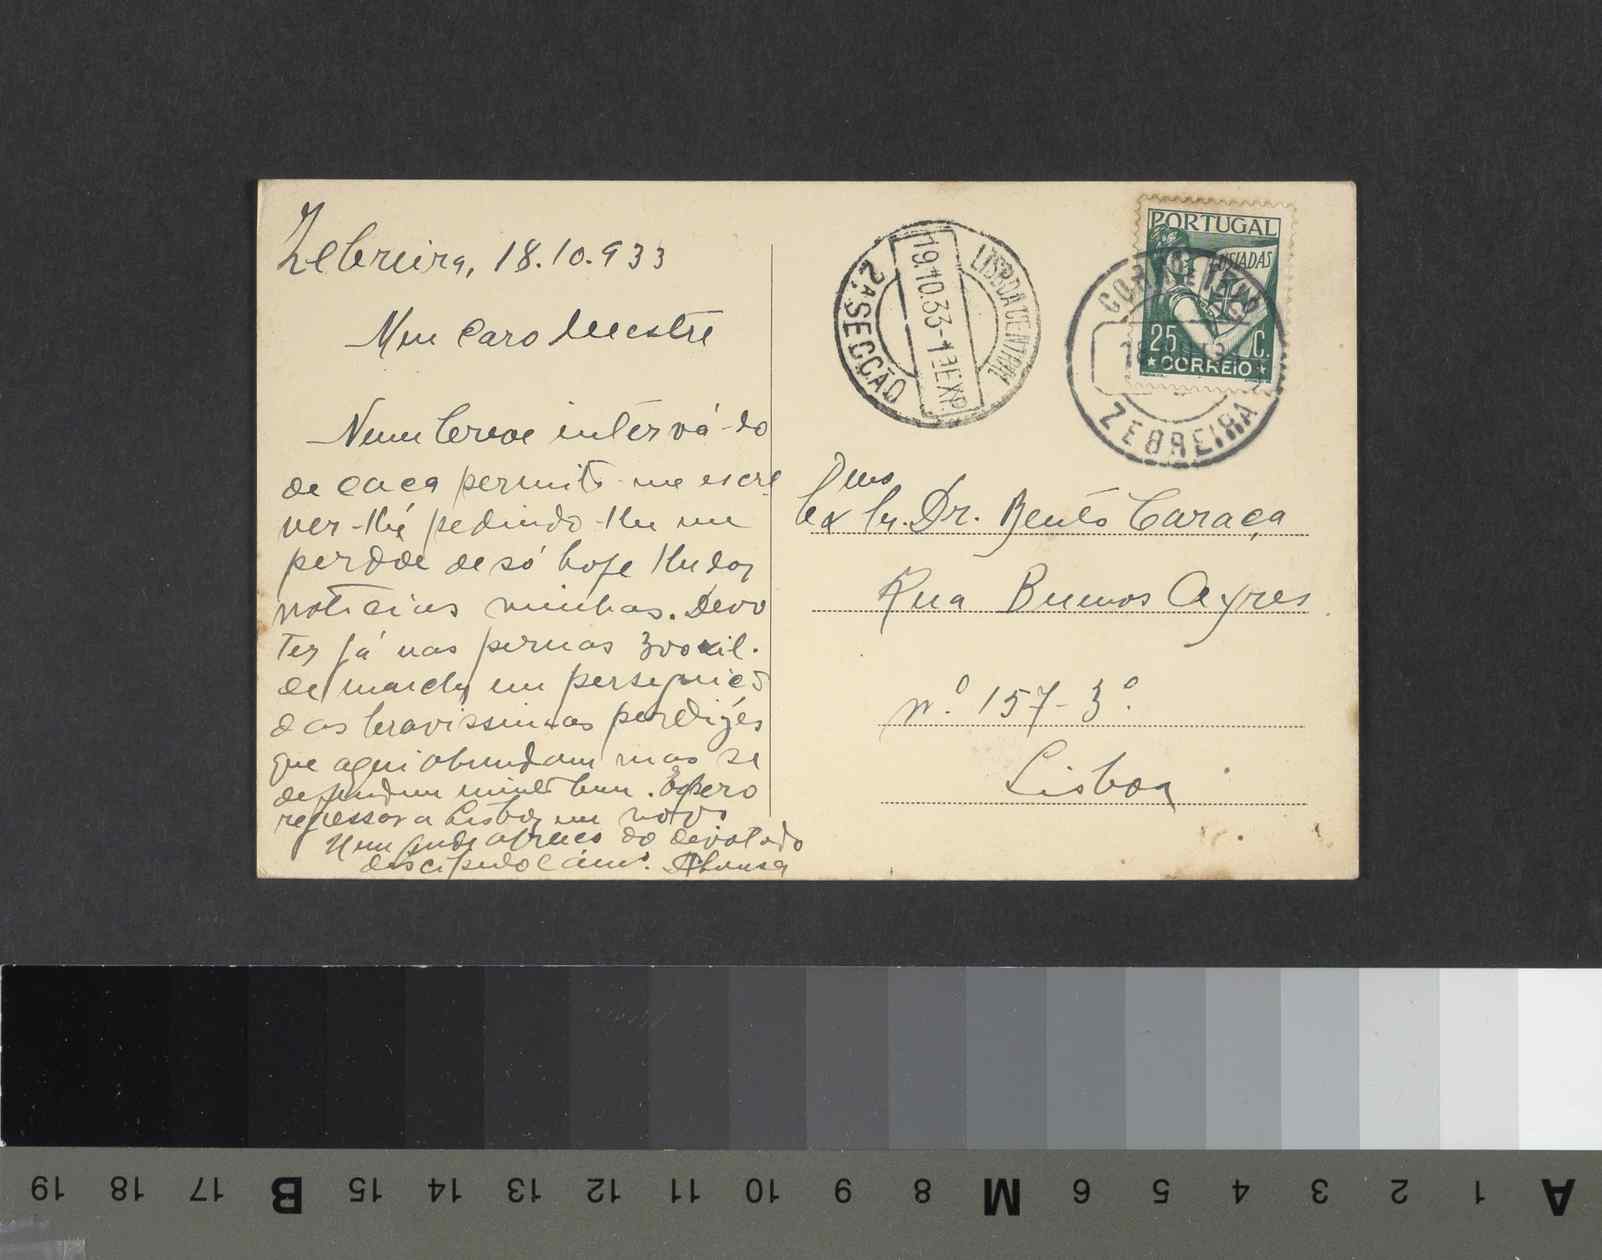 Zebreira, 18.10.933
Meu Caro Mestre
Num breve interválo
de caça permito-me escre
ver-lhe pedindo-lhe me
perdoe de só hoje lhe dar
noticias minhas. Devo
ter já nas pernas 300 kil.
de marcha em perseguição
das bravissimas perdizes
que aqui abundam mas se
defendem muito bem. Espero
regressar a Lisboa em
Um grande abraço do devotado
discipulo e amo.
PORTUGAL
LUSIADAS
25 C.
CORREIO
LISBOA CENTRAL
19.10.33-13 EXP.
2ª SECÇÃO
ZEBREIRA
Exmo Sr. Dr. Bento Caraça
Rua Buenos Ayres
nº 157-3º
Lisboa
19 18 17 B 15 14 13 12 11 10 9 8 M 6 5 4 3 2 1 A